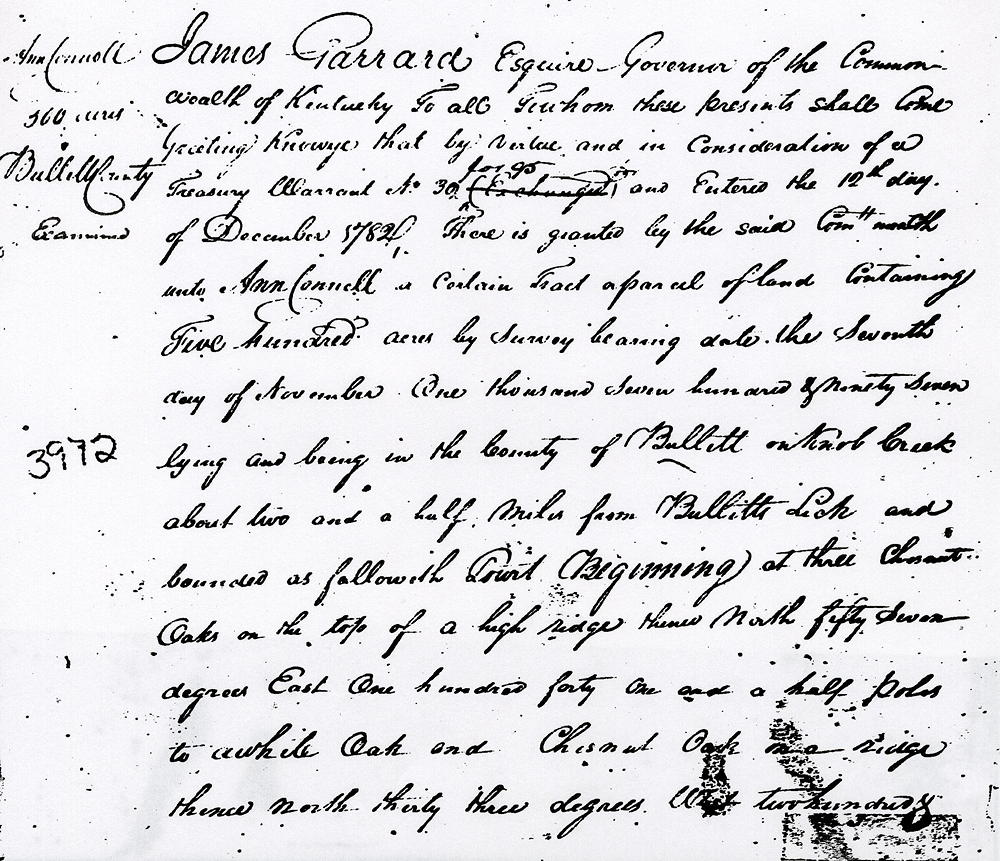 Ann Connell
560 acres
Bullitt County
Examined
3972
James Garrard Esquire Governor of the Common-
wealth of Kentucky To all Towhom these presents shall Come
Greeting Knowye that by virtue and in Consideration of a
for 95
Treasury Warrant No 30 (Exchanged) and Entered the 12th day.
of December 1782 There is granted by the said Comtt wealth
unto Ann Connell a Certain Tract a parcel of land Containing
Five hundred acres by Survey bearing date the Seventh
day of November One thousand Seven hundred & Ninety Seven
lying and being in the County of Bullitt on Knob Creek
about two and a half Miles from Bullitts Lick and
bounded as followith Towit (Beginning) at three Chesnut
Oaks on the top of a high ridge thence North fifty Seven
degrees East One hundred forty One and a half Poles
to awhite Oak and Chesnut Oak on a ridge
thence North thirty three degrees West two hundred &